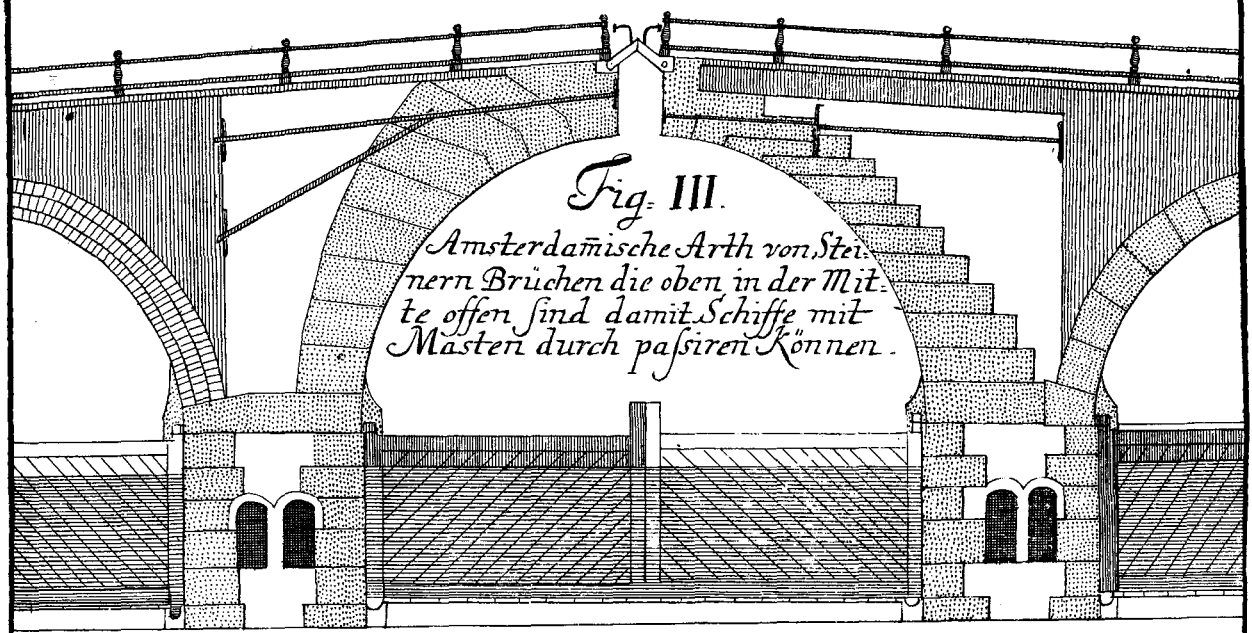 Fig: III.
Amsterdam̄ische Arth von Stei:
nern Brüchen die oben in der Mit:
te offen ſind damit Schiffe mit
Masten durch paſsiren Können.